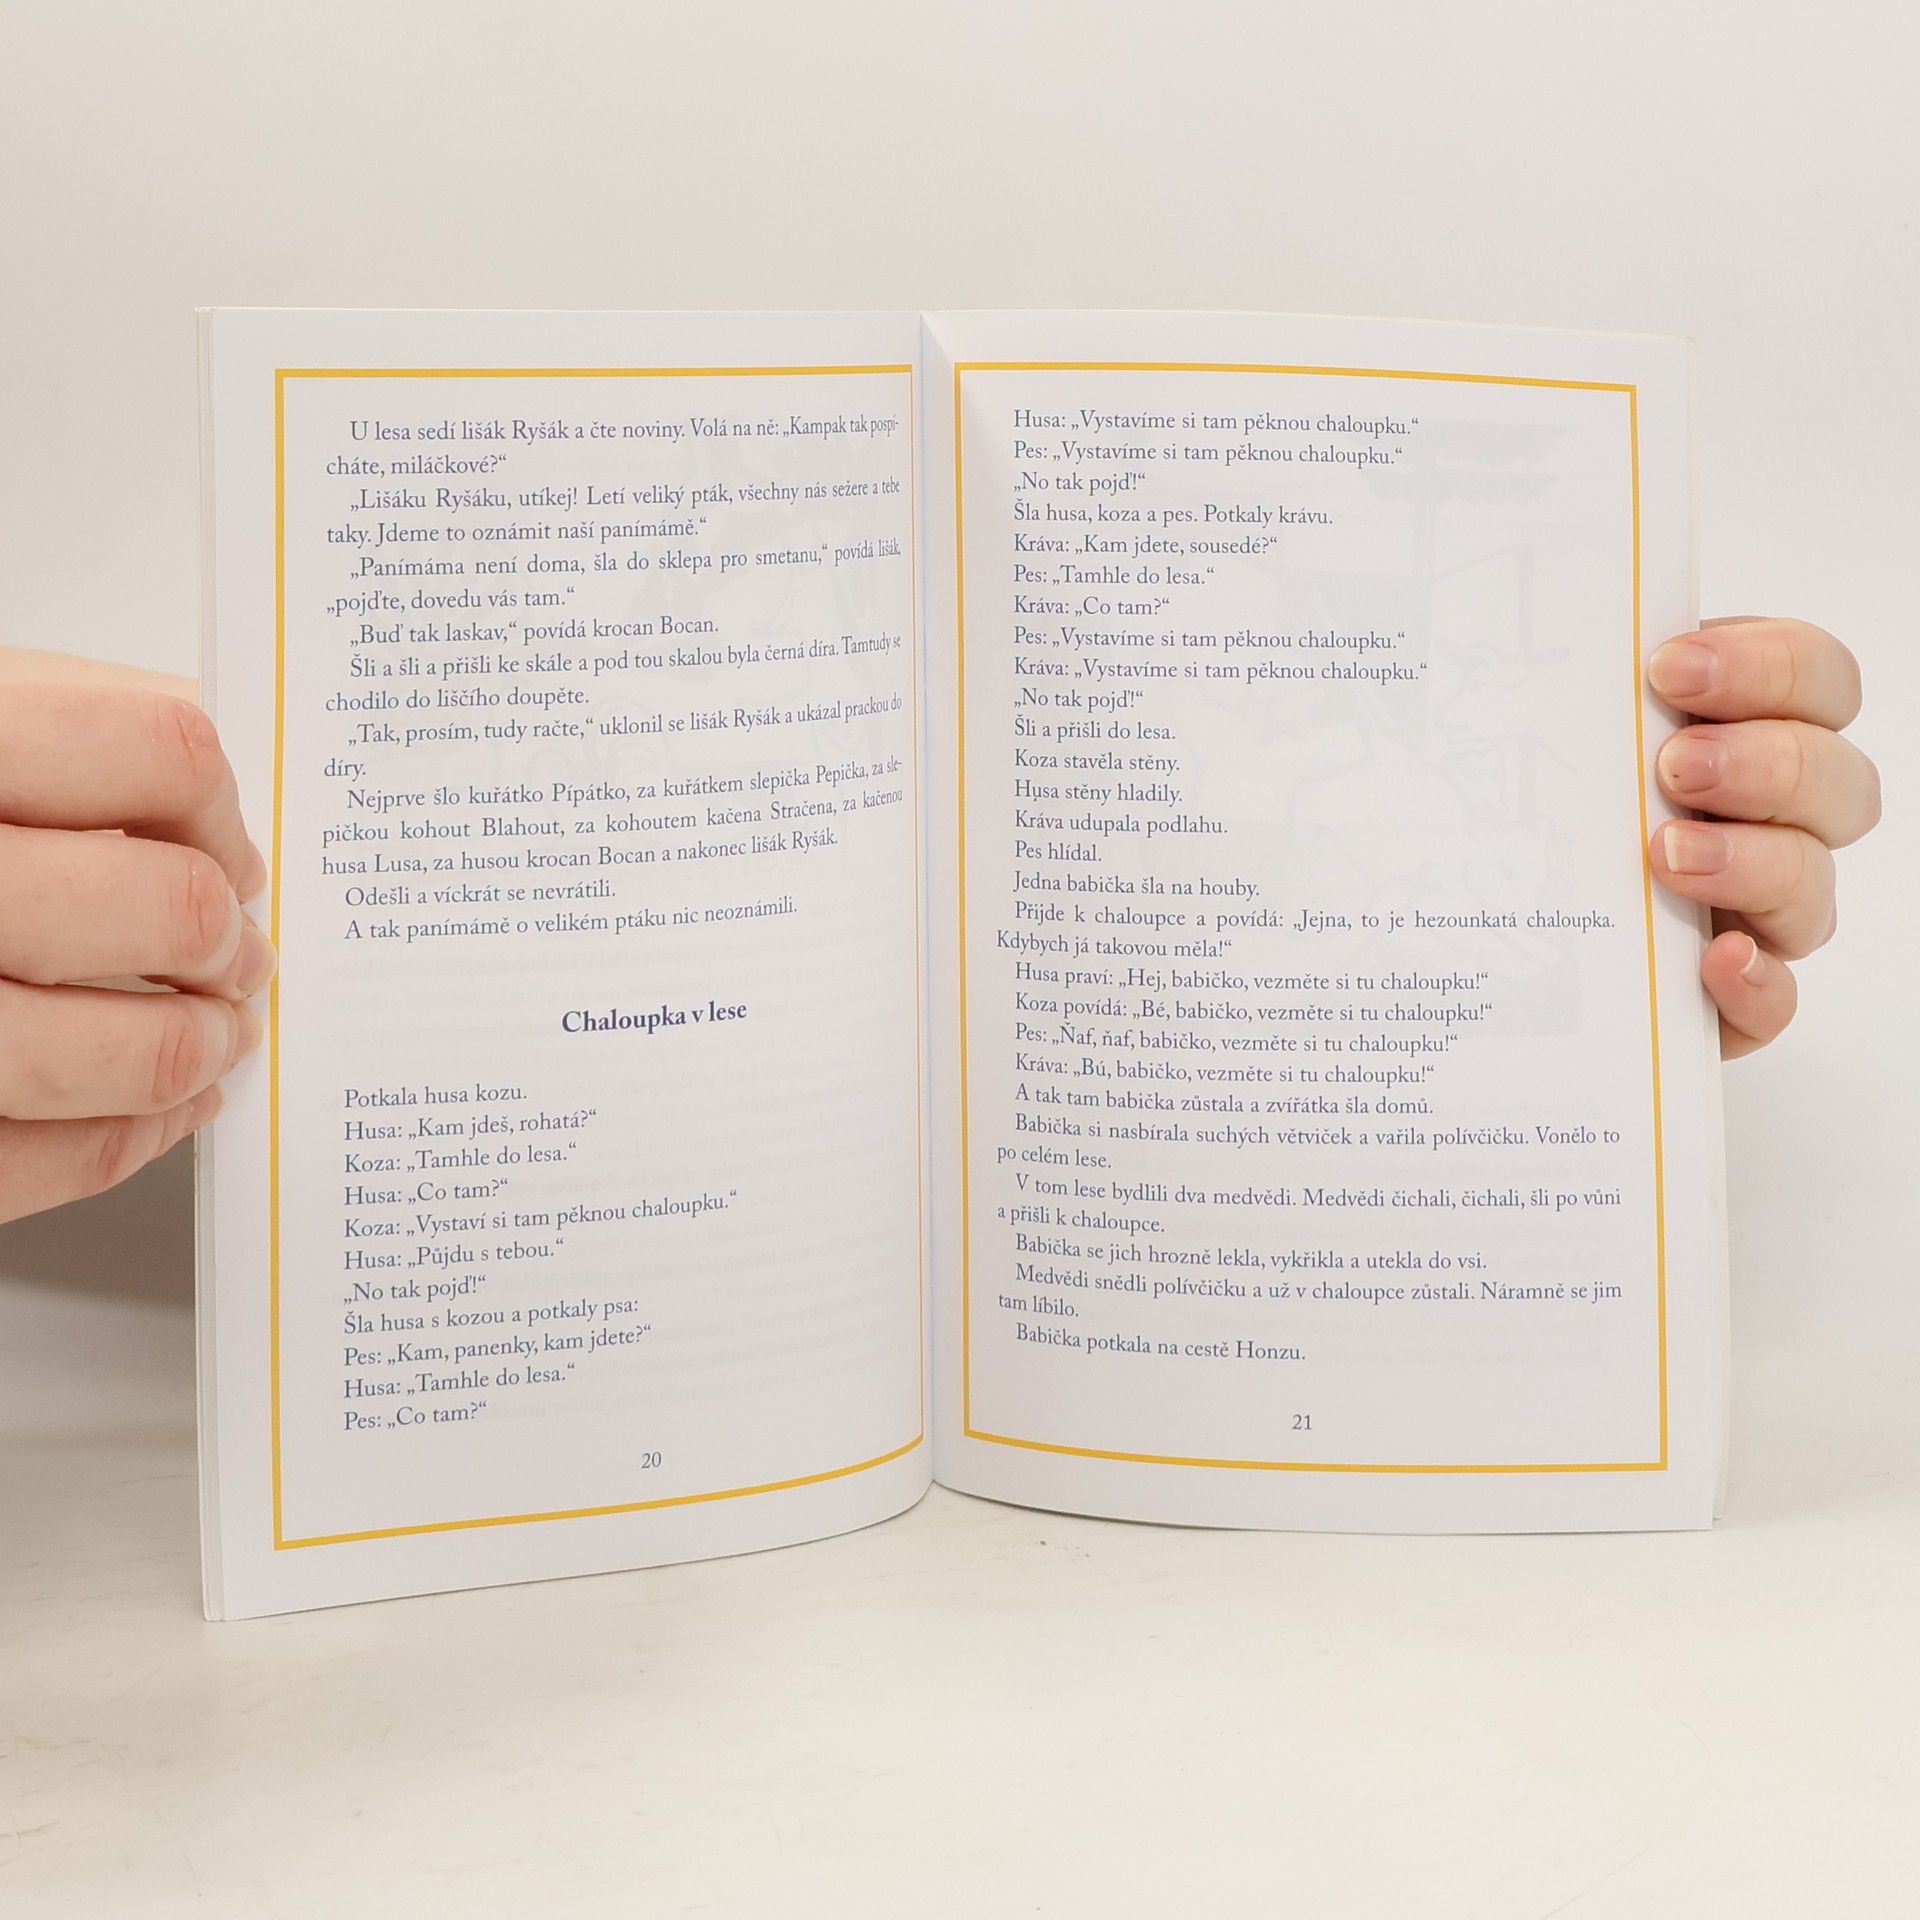 U lesa sedí lišák Ryšák a čte noviny. Volá na ně: „Kampak tak pospí-
cháte, miláčkové?“
„Lišáku Ryšáku, utíkej! Letí veliký pták, všechny nás sežere a tebe
taky. Jdeme to oznámit naší panímámě.“
„Panímáma není doma, šla do sklepa pro smetanu,“ povídá lišák,
„pojďte, dovedu vás tam.“
„Buď tak laskav,“ povídá krocan Bocan.
Šli a šli a přišli ke skále a pod tou skalou byla černá díra. Tamtudy se
chodilo do liščího doupěte.
„Tak, prosím, tudy račte,“ uklonil se lišák Ryšák a ukázal prackou do
díry.
Nejprve šlo kuřátko Pípátko, za kuřátkem slepička Pepička, za sle-
pičkou kohout Blahout, za kohoutem kačena Stračena, za kačenou
husa Lusa, za husou krocan Bocan a nakonec lišák Ryšák.
Odešli a víckrát se nevrátili.
A tak panímámě o velikém ptáku nic neoznámili.
Chaloupka v lese
Potkala husa kozu.
Husa: „Kam jdeš, rohatá?“
Koza: „Tamhle do lesa.“
Husa: „Co tam?“
Koza: „Vystaví si tam pěknou chaloupku.“
Husa: „Půjdu s tebou.“
„No tak pojď!“
Šla husa s kozou a potkaly psa:
Pes: „Kam, panenky, kam jdete?“
Husa: „Tamhle do lesa.“
Pes: „Co tam?“
20
Husa: „Vystavíme si tam pěknou chaloupku.“
Pes: „Vystavíme si tam pěknou chaloupku.“
„No tak pojď!“
Šla husa, koza a pes. Potkaly krávu.
Kráva: „Kam jdete, sousedé?“
Pes: „Tamhle do lesa.“
Kráva: „Co tam?“
Pes: „Vystavíme si tam pěknou chaloupku.“
Kráva: „Vystavíme si tam pěknou chaloupku.“
„No tak pojď!“
Šli a přišli do lesa.
Koza stavěla stěny.
Husa stěny hladily.
Kráva udupala podlahu.
Pes hlídal.
Jedna babička šla na houby.
Přijde k chaloupce a povídá: „Jejna, to je hezounkatá chaloupka.
Kdybych já takovou měla!“
Husa praví: „Hej, babičko, vezměte si tu chaloupku!“
Koza povídá: „Bé, babičko, vezměte si tu chaloupku!“
Pes: „Ňaf, ňaf, babičko, vezměte si tu chaloupku!“
Kráva: „Bú, babičko, vezměte si tu chaloupku!“
A tak tam babička zůstala a zvířátka šla domů.
Babička si nasbírala suchých větviček a vařila polívčičku. Vonělo to
po celém lese.
V tom lese bydlili dva medvědi. Medvědi čichali, čichali, šli po vůni
a přišli k chaloupce.
Babička se jich hrozně lekla, vykřikla a utekla do vsi.
Medvědi snědli polívčičku a už v chaloupce zůstali. Náramně se jim
tam líbilo.
Babička potkala na cestě Honzu.
21